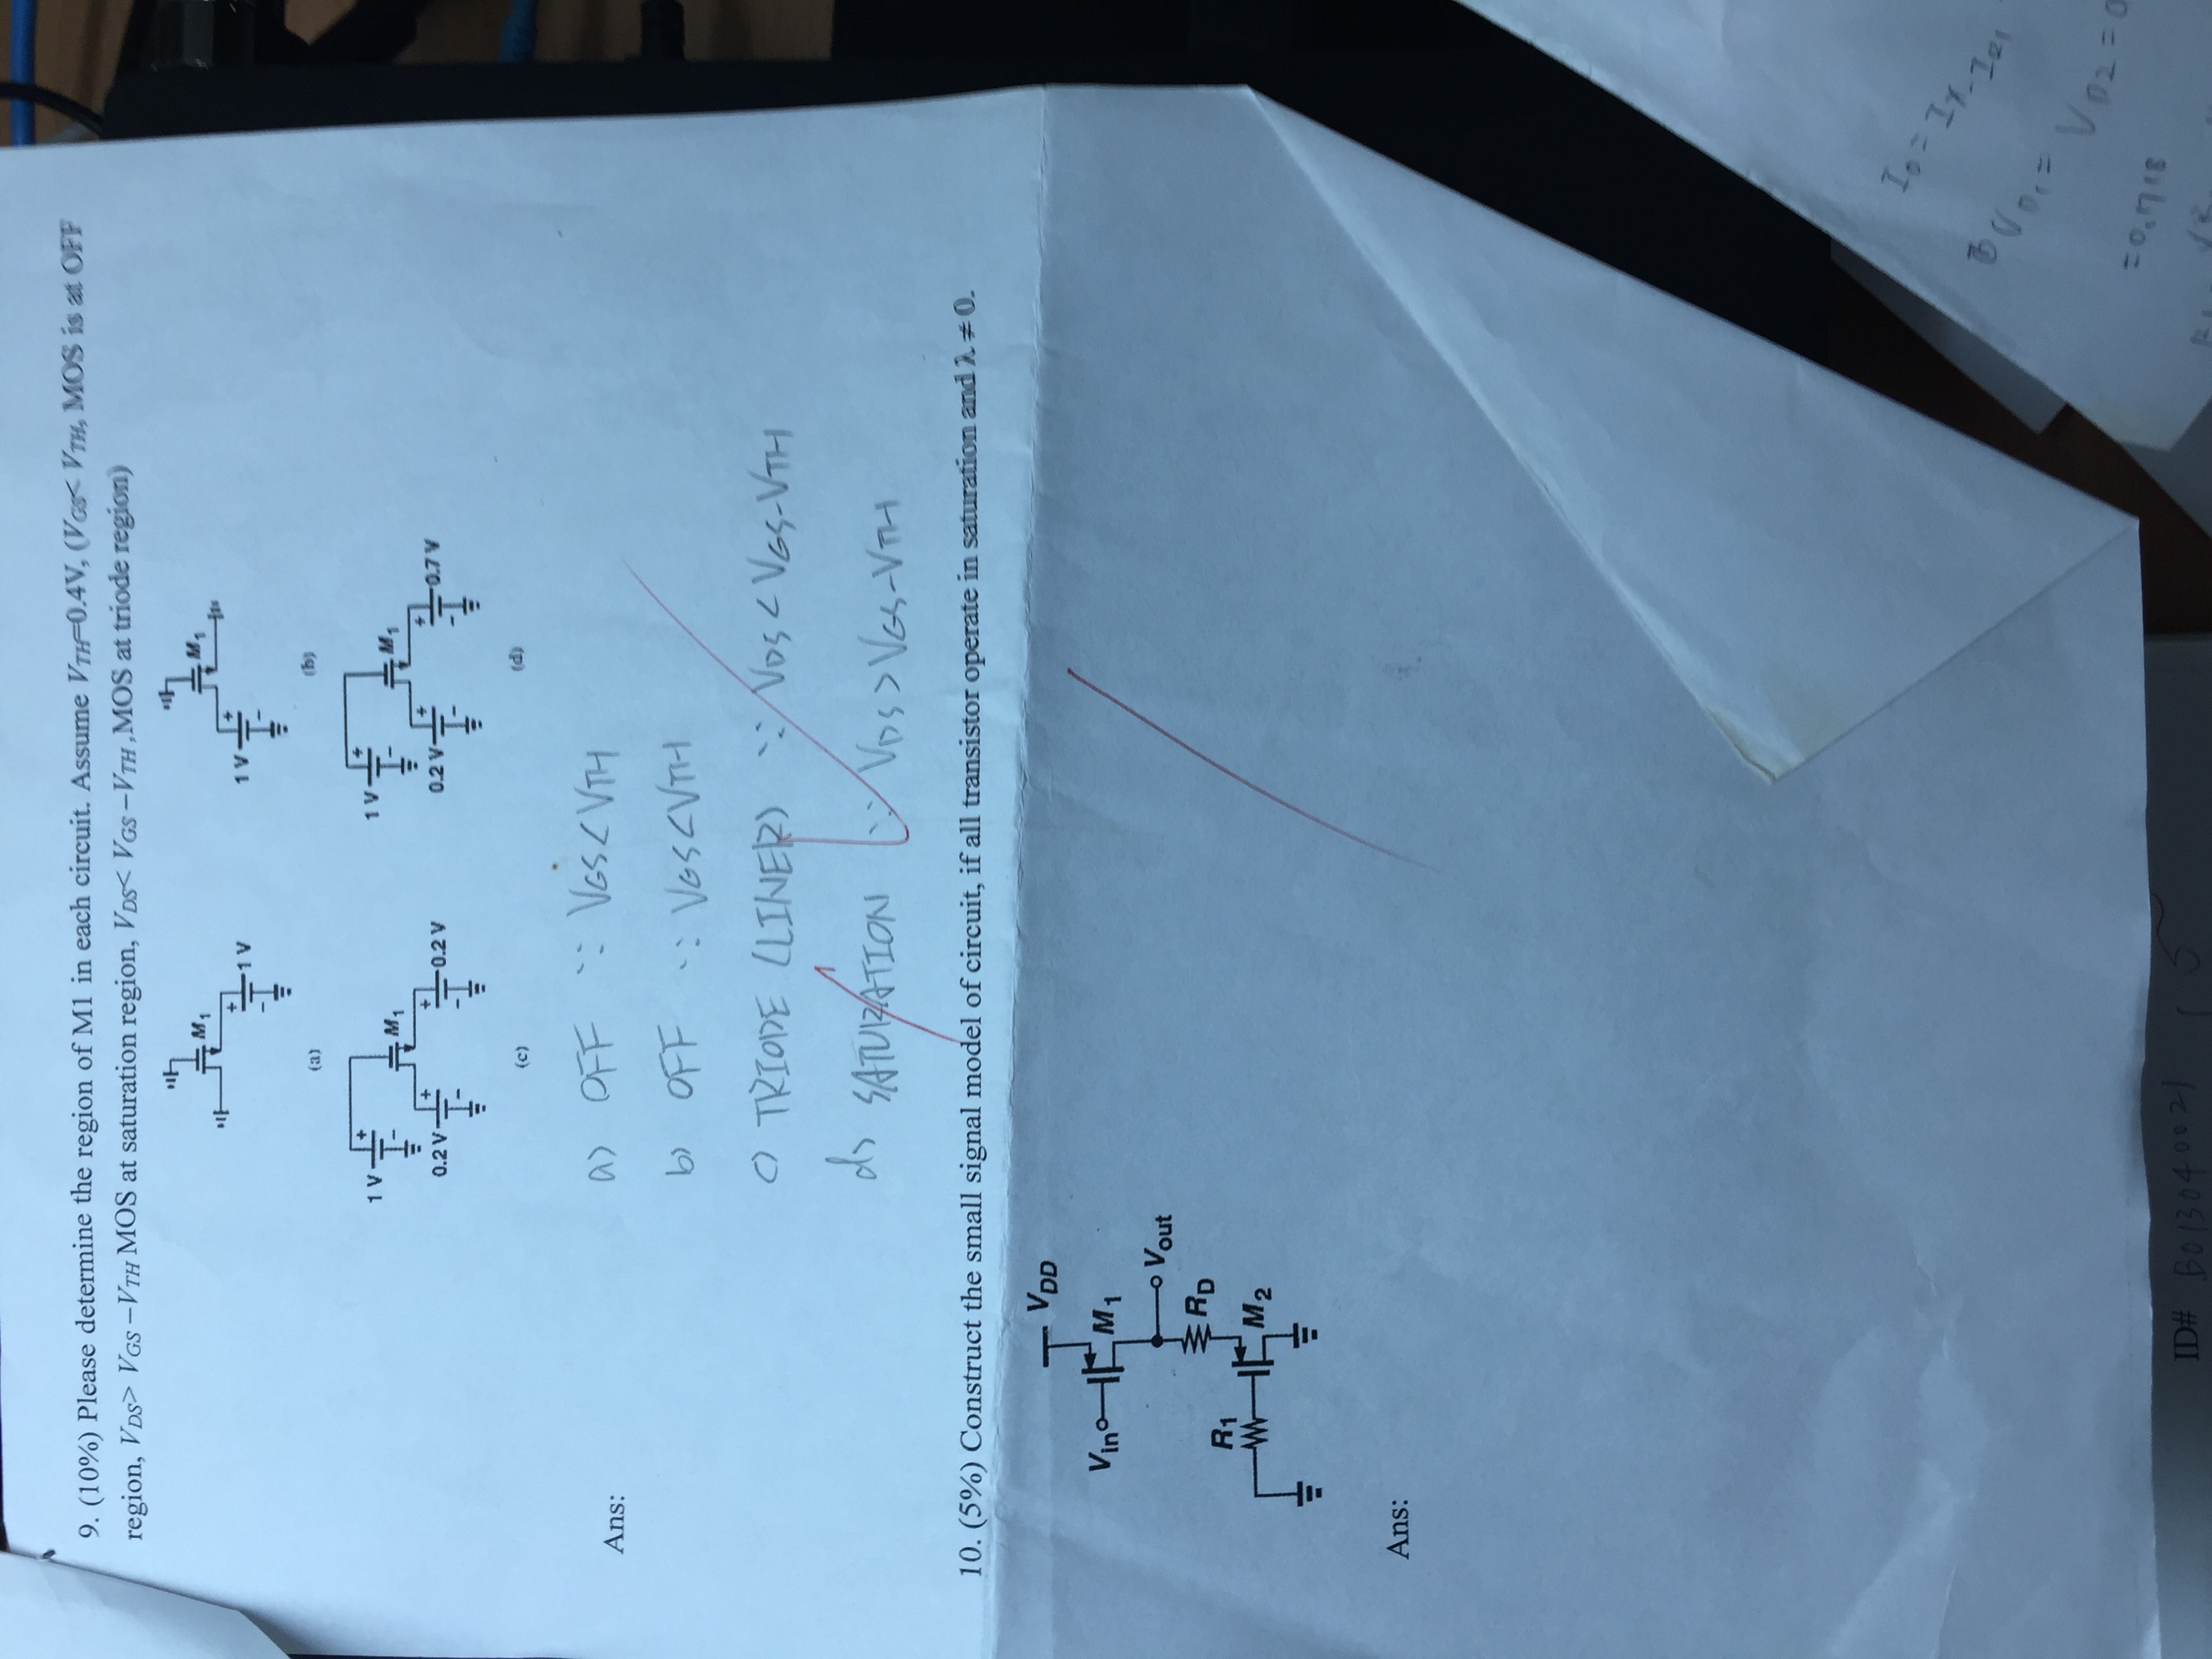 9. (10%) Please determine the region of M1 in each circuit. Assume VTH=0.4V, (VGS< VTH, MOS is at OFF
region, VDS> VGS –VTH MOS at saturation region, VDS< VGS –VTH ,MOS at triode region)
M1
+
1 V
-
(a)
M1
1 V
+
-
(b)
1 V
+
-
M1
0.2 V
+
-
+
-
0.2 V
(c)
1 V
+
-
M1
0.2 V
+
-
+
-
0.7 V
(d)
Ans:
a) OFF ∵ VGS<VTH
b) OFF ∵ VGS<VTH
c) TRIODE (LINER) ∵ VDS < VGS-VTH
d) SATURATION ∵ VDS > VGS-VTH
10. (5%) Construct the small signal model of circuit, if all transistor operate in saturation and λ ≠ 0.
VDD
Vin
M1
Vout
RD
R1
M2
Ans:
I0 = IX - IR1
VD1 = VD2 = 0
=0.718
ID# B013040021
15